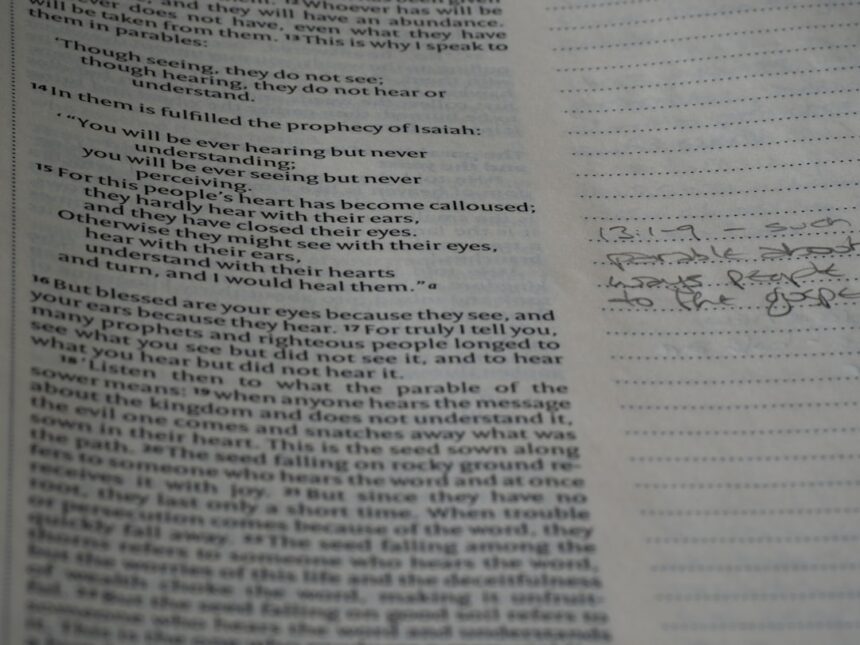 Whoever has will be
, and they will have an abundance.
ever does not have, even what they have
will be taken from them. 13 This is why I speak to
them in parables:
‘Though seeing, they do not see;
though hearing, they do not hear or
understand.
14 In them is fulfilled the prophecy of Isaiah:
‘ “You will be ever hearing but never
understanding;
you will be ever seeing but never
perceiving.
15 For this people’s heart has become calloused;
they hardly hear with their ears,
and they have closed their eyes.
Otherwise they might see with their eyes,
hear with their ears,
understand with their hearts
and turn, and I would heal them.” a
16 But blessed are your eyes because they see, and
your ears because they hear. 17 For truly I tell you,
many prophets and righteous people longed to
see what you see but did not see it, and to hear
what you hear but did not hear it.
18 ‘Listen then to what the parable of the
sower means: 19 when anyone hears the message
about the kingdom and does not understand it,
the evil one comes and snatches away what was
sown in their heart. This is the seed sown along
the path. 20 The seed falling on rocky ground re-
fers to someone who hears the word and at once
receives it with joy. 21 But since they have no
root, they last only a short time. When trouble
or persecution comes because of the word, they
quickly fall away. 22 The seed falling among the
thorns refers to someone who hears the word,
but the worries of this life and the deceitfulness
of wealth choke the word, making it unfruit-
ful. 23 But the seed falling on good soil refers to
someone who hears the word and understands
it. This is the
13:1-9 – such
parable about
ways people
to the gospe